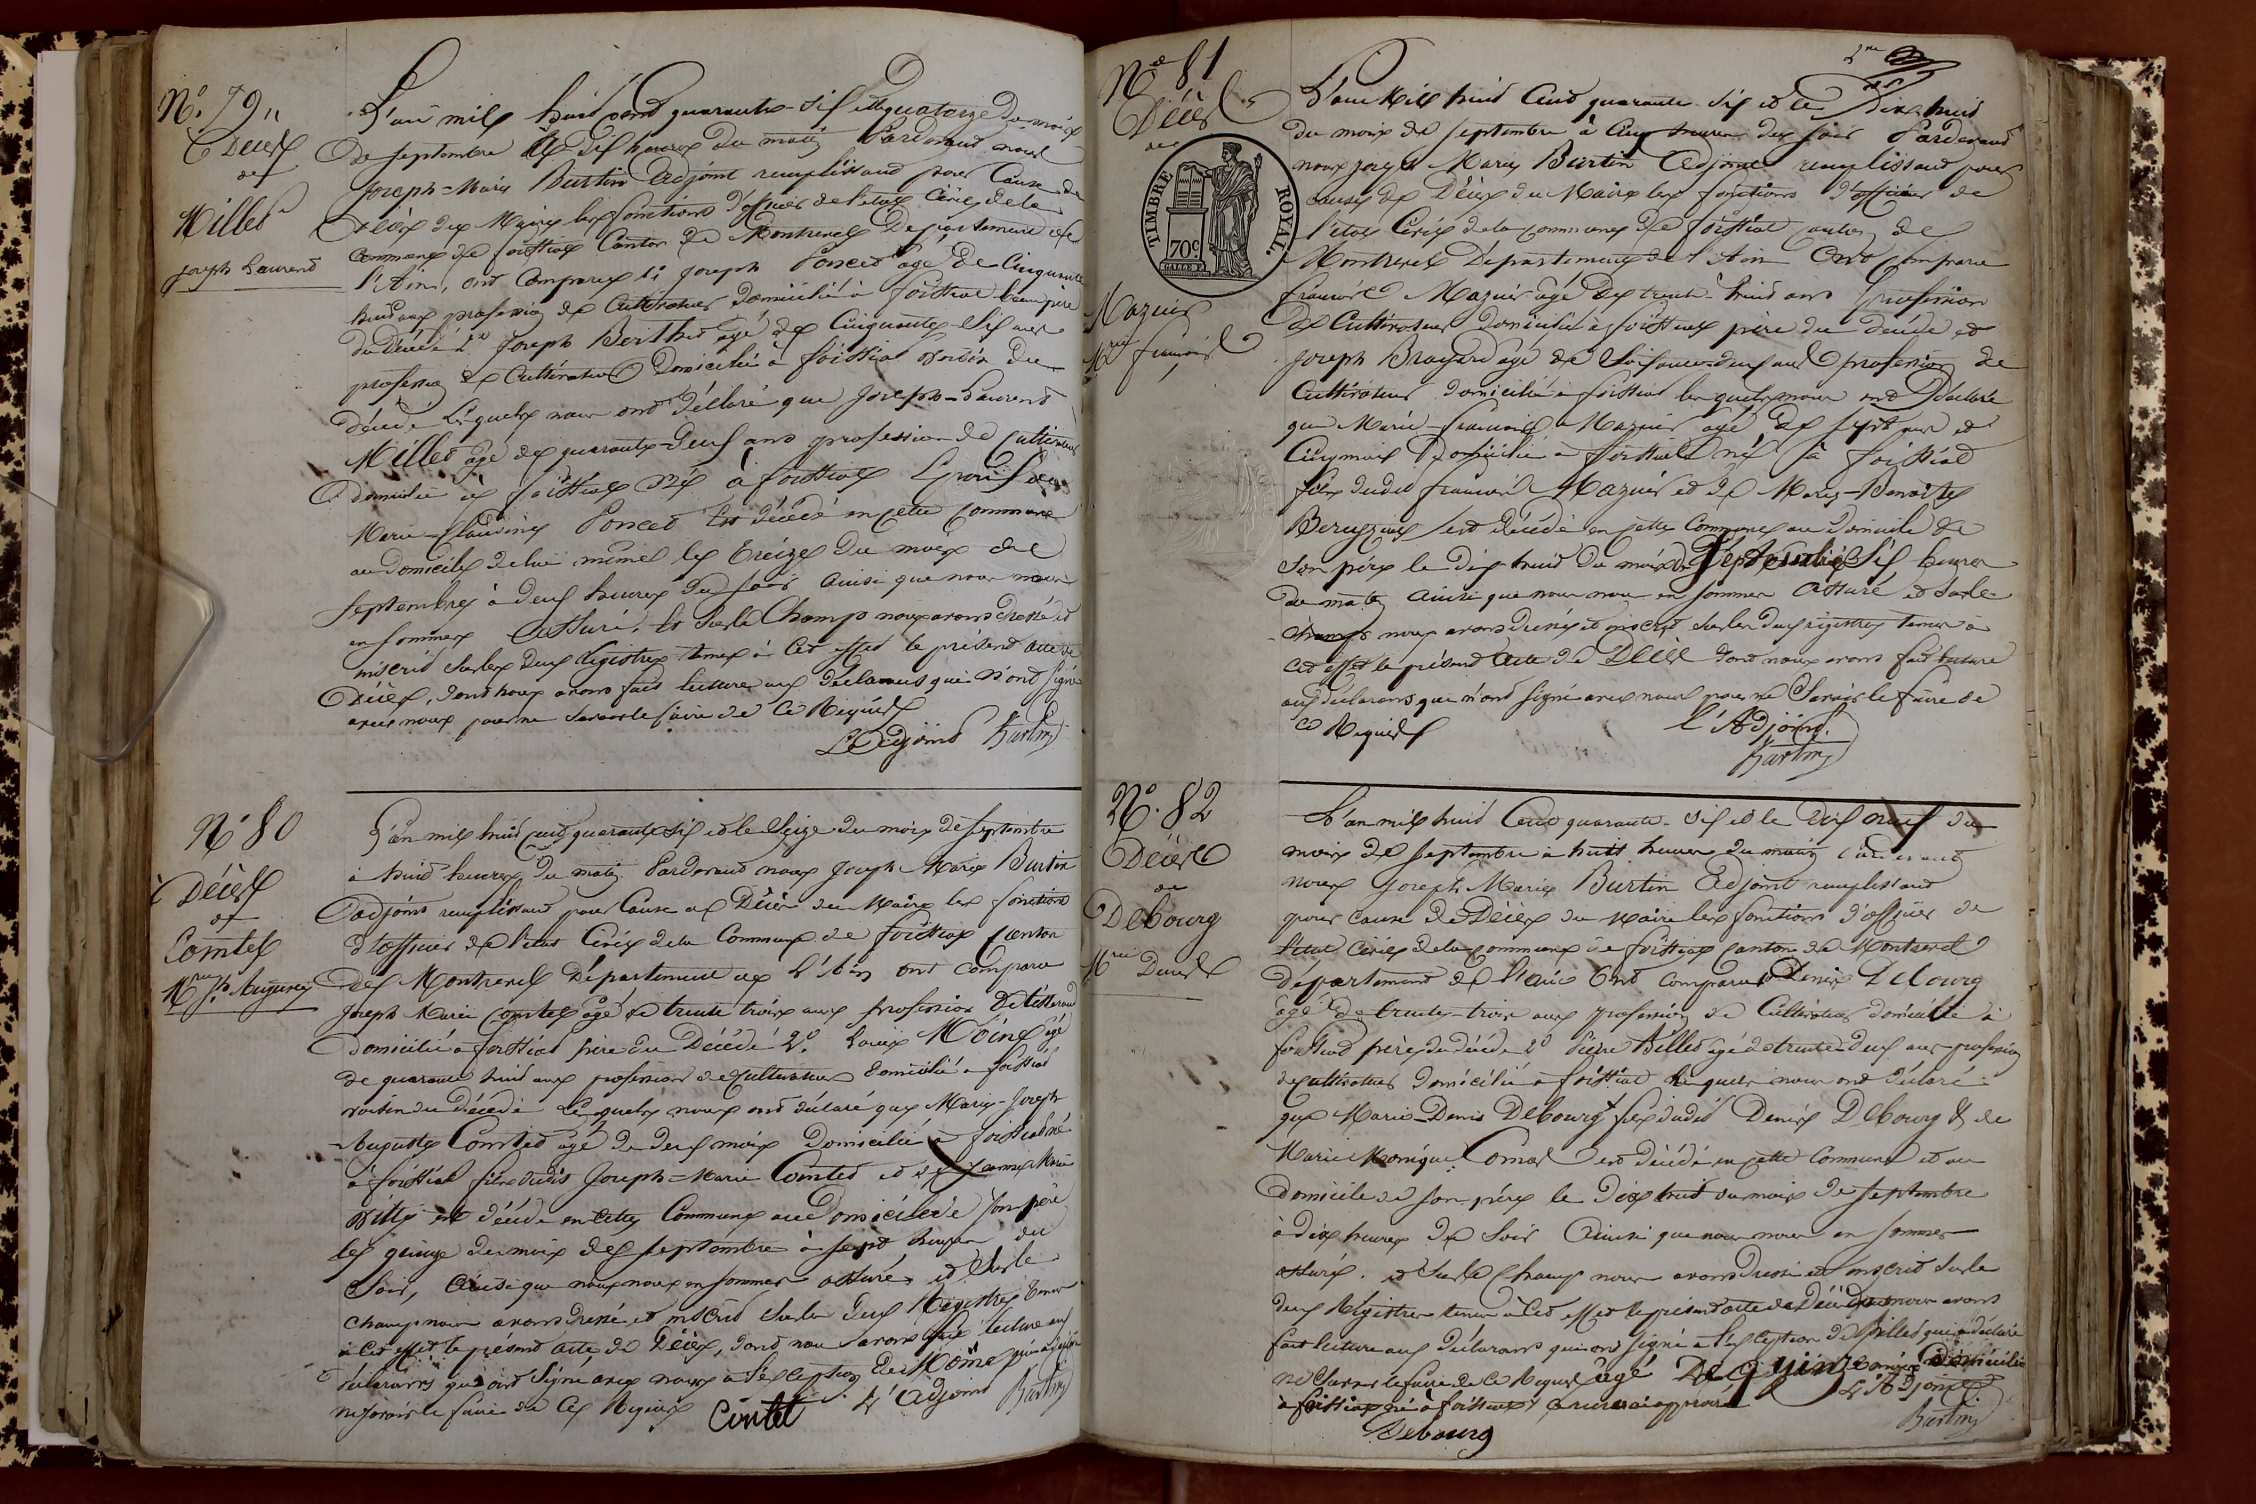 N.° 79
Décès
de
Millet
Joseph Laurent
L'an mil huit cent quarante-six et le quatorze du mois
de septembre à dix heures du matin Pardevant nous
Joseph-Marie Burtin adjoint remplissant pour Cause de
décès du Maire les fonctions d'officier de l'état Civil de la
Commune de foissiat Canton de Montrevel Département de
l'Ain, ont Comparu 1.° Joseph Poncet agé de Cinquante
huit ans profession de Cultivateur domicilié à foissiat beau père
du décédé 2.° Joseph Berthet agé de Cinquante-six ans
profession de Cultivateur Domicilié à foissiat voisin du
décédé Lesquels nous ont déclaré que Joseph-Laurent
Millet agé de quarante-deux ans profession de Cultivateur
domicilié à foissiat né à foissiat Epoux de
Marie-Claudine Poncet est décédé en cette Commune
au domicile de lui même le treize du mois de
septembre à deux heures du soir ainsi que nous nous
en sommes assuré, et sur le Champ nous avons dressé et
inscrit sur les deux Registres tenus à cet effet le présent acte de
Décès, dont nous avons fait lecture aux déclarants qui n'ont signé
avec nous pour ne savoir le faire de ce Requis
L'Adjoint Burtin
N.° 80
Décès
de
Comtet
Mrie Jph Auguste
L'an mil huit cent quarante six et le Seize du mois de septembre
à huit heures du matin Pardevant nous Joseph Marie Burtin
adjoint remplissant pour Cause de Décès du Maire les fonctions
d'officier de l'état Civil de la Commune de foissiat Canton
de Montrevel Département de L'Ain ont comparu
Joseph Marie Comtet agé de trente trois ans profession de tisserand
domicilié à foissiat père du Décédé 2.° Louis Moine agé
de quarante huit ans profession de Cultivateur Domicilié à foissiat
voisin du Décédé Lesquels nous ont déclaré que Marie-Joseph
Auguste Comtet agé de deux mois Domicilié à foissiat né
à foissiat fils dudit Joseph-Marie Comtet et de Jeanne Marie
est décédé en Cette Commune au Domicile de son père
le quinze du mois de septembre à sept heures du
soir, ainsi que nous nous en sommes assuré, et sur le
champ nous avons dressé et inscrit sur les deux Registres tenus
à cet effet le présent acte de Décès, dont nous avons fait lecture aux
déclarants qui ont signé avec nous à l'exception de Moine qui a déclaré
ne savoir le faire de ce Requis Comtet L'adjoint Burtin
N.° 81
Décès
de
TIMBRE ROYAL.
70 c
Mazuir
Mrie françois
L'an Mil huit Cent quarante-six et le Dix-huit
du mois de septembre à Cinq heures du soir Pardevant
nous Joseph Marie Burtin adjoint remplissant pour
cause de Décès du Maire les fonctions d'officier de
l'état Civil de la commune de foissiat canton de
Montrevel Département de l'Ain Ont Comparu
françois Mazuir agé de trente-huit ans profession
de Cultivateur domicilié à foissiat père du décédé et
Joseph Brayard agé de Soixante-deux ans profession de
Cultivateur domicilié à foissiat lesquels nous ont déclaré
que Marie-françois Mazuir agé de sept ans et
Cinq mois domicilié à foissiat né à foissiat
fils dudit françois Mazuir et de Marie-Benoite
est décédé en cette Commune au domicile de
son père le dix-huit du mois de Septembre à Six heures
du matin ainsi que nous nous en sommes assuré et sur le
champ nous avons dressé et inscrit sur les deux registres tenus à
cet effet le présent Acte de Décès dont nous avons fait lecture
aux déclarants qui n'ont signé avec nous pour ne Savoir le faire de
ce Requis
L'Adjoint.
Burtin
N.° 82
Décès
de
Debourg
Mrie Denis
L'an mil huit Cent quarante-six et le dix neuf du
mois de septembre à huit heures du matin Pardevant
nous Joseph Marie Burtin Adjoint remplissant
pour cause de Décès du Maire les fonctions d'officier de
l'état Civil de la commune de foissiat Canton de Montrevel
département de l'Ain Ont comparu Denis Debourg
agé de trente-trois ans profession de Cultivateur domicilié à
foissiat père du décédé 2.° Pierre Billet agé de trente-deux ans profession
de cultivateur domicilié à foissiat lesquels nous ont déclaré
que Marie-Denis Debourg fils dudit Denis Debourg & de
Marie Monique Comas est décédé en cette Commune et au
domicile de son père le dix huit du mois de septembre
à dix heures du soir Ainsi que nous nous en sommes
assuré. et sur le Champ nous avons dressé et inscrit sur les
deux Registres tenus à Cet effet le présent acte de Décès dont nous avons
fait lecture aux déclarants qui ont signé à l'exception de Billet qui a déclaré
ne Savoir le faire de ce Requis agé De quinze mois domicilié
à foissiat né à foissiat approuvé L'Adjoint
Debourg Burtin